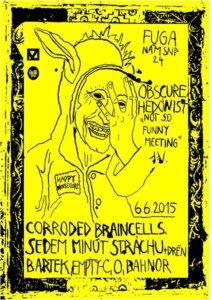 FUGA
NÁM SNP
24
OBSCURE
HEDONIST
"NOT SO
FUNNY
MEETING"
HAPPY
6.6.2015
CORRODED BRAINCELLS
SEDEM MINÚT STRACHU, DRÉN
BARTEK, EMPTY C.O, BAHNOR